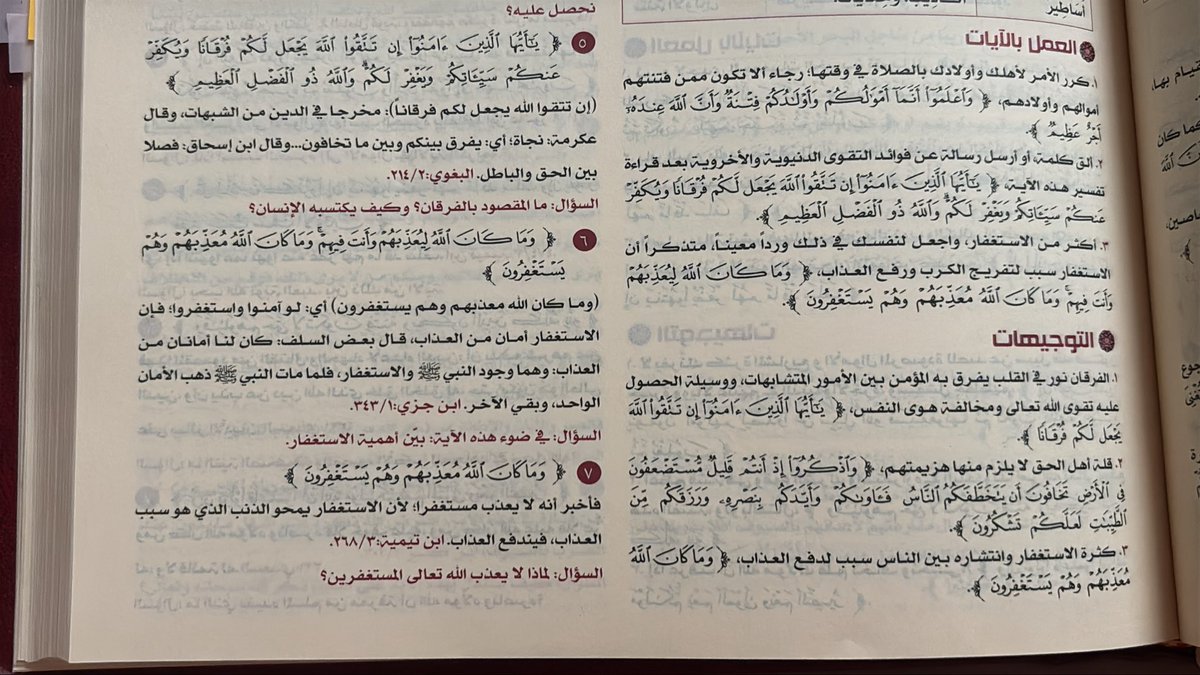 أساطير
العمل بالآيات
١. كرر الأمر لأهلك وأولادك بالصلاة في وقتها؛ رجاء ألا تكون ممن فتنتهم
أموالهم وأولادهم، ﴿ وَٱعْلَمُوٓا۟ أَنَّمَآ أَمْوَٰلُكُمْ وَأَوْلَٰدُكُمْ فِتْنَةٌ وَأَنَّ ٱللَّهَ عِندَهُۥٓ
أَجْرٌ عَظِيمٌ ﴾.
٢. ألق كلمة، أو أرسل رسالة عن فوائد التقوى الدنيوية والأخروية بعد قراءة
تفسير هذه الآية، ﴿ يَٰٓأَيُّهَا ٱلَّذِينَ ءَامَنُوٓا۟ إِن تَتَّقُوا۟ ٱللَّهَ يَجْعَل لَّكُمْ فُرْقَانًا وَيُكَفِّرْ
عَنكُمْ سَيِّـَٔاتِكُمْ وَيَغْفِرْ لَكُمْ ۗ وَٱللَّهُ ذُو ٱلْفَضْلِ ٱلْعَظِيمِ ﴾.
٣. أكثر من الاستغفار، واجعل لنفسك في ذلك ورداً معيناً، متذكراً أن
الاستغفار سبب لتفريج الكرب ورفع العذاب، ﴿ وَمَا كَانَ ٱللَّهُ لِيُعَذِّبَهُمْ
وَأَنتَ فِيهِمْ ۚ وَمَا كَانَ ٱللَّهُ مُعَذِّبَهُمْ وَهُمْ يَسْتَغْفِرُونَ ﴾.
التوجيهات
١. الفرقان نور في القلب يفرق به المؤمن بين الأمور المتشابهات، ووسيلة الحصول
عليه تقوى الله تعالى ومخالفة هوى النفس، ﴿ يَٰٓأَيُّهَا ٱلَّذِينَ ءَامَنُوٓا۟ إِن تَتَّقُوا۟ ٱللَّهَ
يَجْعَل لَّكُمْ فُرْقَانًا ﴾.
٢. قلة أهل الحق لا يلزم منها هزيمتهم، ﴿ وَٱذْكُرُوٓا۟ إِذْ أَنتُمْ قَلِيلٌ مُّسْتَضْعَفُونَ
فِى ٱلْأَرْضِ تَخَافُونَ أَن يَتَخَطَّفَكُمُ ٱلنَّاسُ فَـَٔاوَىٰكُمْ وَأَيَّدَكُم بِنَصْرِهِۦ وَرَزَقَكُم مِّنَ
ٱلطَّيِّبَٰتِ لَعَلَّكُمْ تَشْكُرُونَ ﴾.
٣. كثرة الاستغفار وانتشاره بين الناس سبب لدفع العذاب، ﴿ وَمَا كَانَ ٱللَّهُ
مُعَذِّبَهُمْ وَهُمْ يَسْتَغْفِرُونَ ﴾.
نحصل عليه؟
٥ ﴿ يَٰٓأَيُّهَا ٱلَّذِينَ ءَامَنُوٓا۟ إِن تَتَّقُوا۟ ٱللَّهَ يَجْعَل لَّكُمْ فُرْقَانًا وَيُكَفِّرْ
عَنكُمْ سَيِّـَٔاتِكُمْ وَيَغْفِرْ لَكُمْ ۗ وَٱللَّهُ ذُو ٱلْفَضْلِ ٱلْعَظِيمِ ﴾
(إن تتقوا الله يجعل لكم فرقاناً): مخرجا في الدين من الشبهات، وقال
عكرمة: نجاة؛ أي: يفرق بينكم وبين ما تخافون...وقال ابن إسحاق: فصلا
بين الحق والباطل. البغوي:٢١٤/٢.
السؤال: ما المقصود بالفرقان؟ وكيف يكتسبه الإنسان؟
٦ ﴿ وَمَا كَانَ ٱللَّهُ لِيُعَذِّبَهُمْ وَأَنتَ فِيهِمْ ۚ وَمَا كَانَ ٱللَّهُ مُعَذِّبَهُمْ وَهُمْ
يَسْتَغْفِرُونَ ﴾
(وما كان الله معذبهم وهم يستغفرون) أي: لو آمنوا واستغفروا؛ فإن
الاستغفار أمان من العذاب، قال بعض السلف: كان لنا أمانان من
العذاب: وهما وجود النبي ﷺ والاستغفار، فلما مات النبي ﷺ ذهب الأمان
الواحد، وبقي الآخر. ابن جزي:٣٤٣/١.
السؤال: في ضوء هذه الآية: بيّن أهمية الاستغفار.
٧ ﴿ وَمَا كَانَ ٱللَّهُ مُعَذِّبَهُمْ وَهُمْ يَسْتَغْفِرُونَ ﴾
فأخبر أنه لا يعذب مستغفرا؛ لأن الاستغفار يمحو الذنب الذي هو سبب
العذاب، فيندفع العذاب. ابن تيمية:٢٦٨/٣.
السؤال: لماذا لا يعذب الله تعالى المستغفرين؟